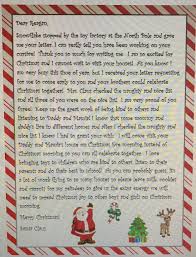 Dear Reagan,
Snowflake stopped by the toy factory at the North Pole and gave
me your letter. I can really tell you have been working on your
writing! Thank you so much for writing me. I am so excited for
Christmas and I cannot wait to visit your house! As you know I
am very busy this time of year, but I received your letter requesting
for me to come early so you and your brothers could celebrate
Christmas together! Mrs. Claus and I checked the naughty and nice
list and all three of you were on the nice list! I am so very proud of
you! Keep up the great work of being kind to others and
listening to Teddy and Mamaw! I know that your mommy and
daddy's live in different homes and after I checked the naughty and
nice list I knew that I had to come early! I will arrive with your
toys to Teddy and Mamaw's house on Christmas Eve morning instead of
Christmas morning so you can all celebrate together! I love
bringing toys to children who are kind to others, listen to their
parents and do their best in school! As you can probably guess, it's
a lot of work to visit every house so please leave milk, cookies and
carrots for my reindeer to give us the extra energy we will
need to spread Christmas joy around the world!
Merry Christmas!
Santa Claus